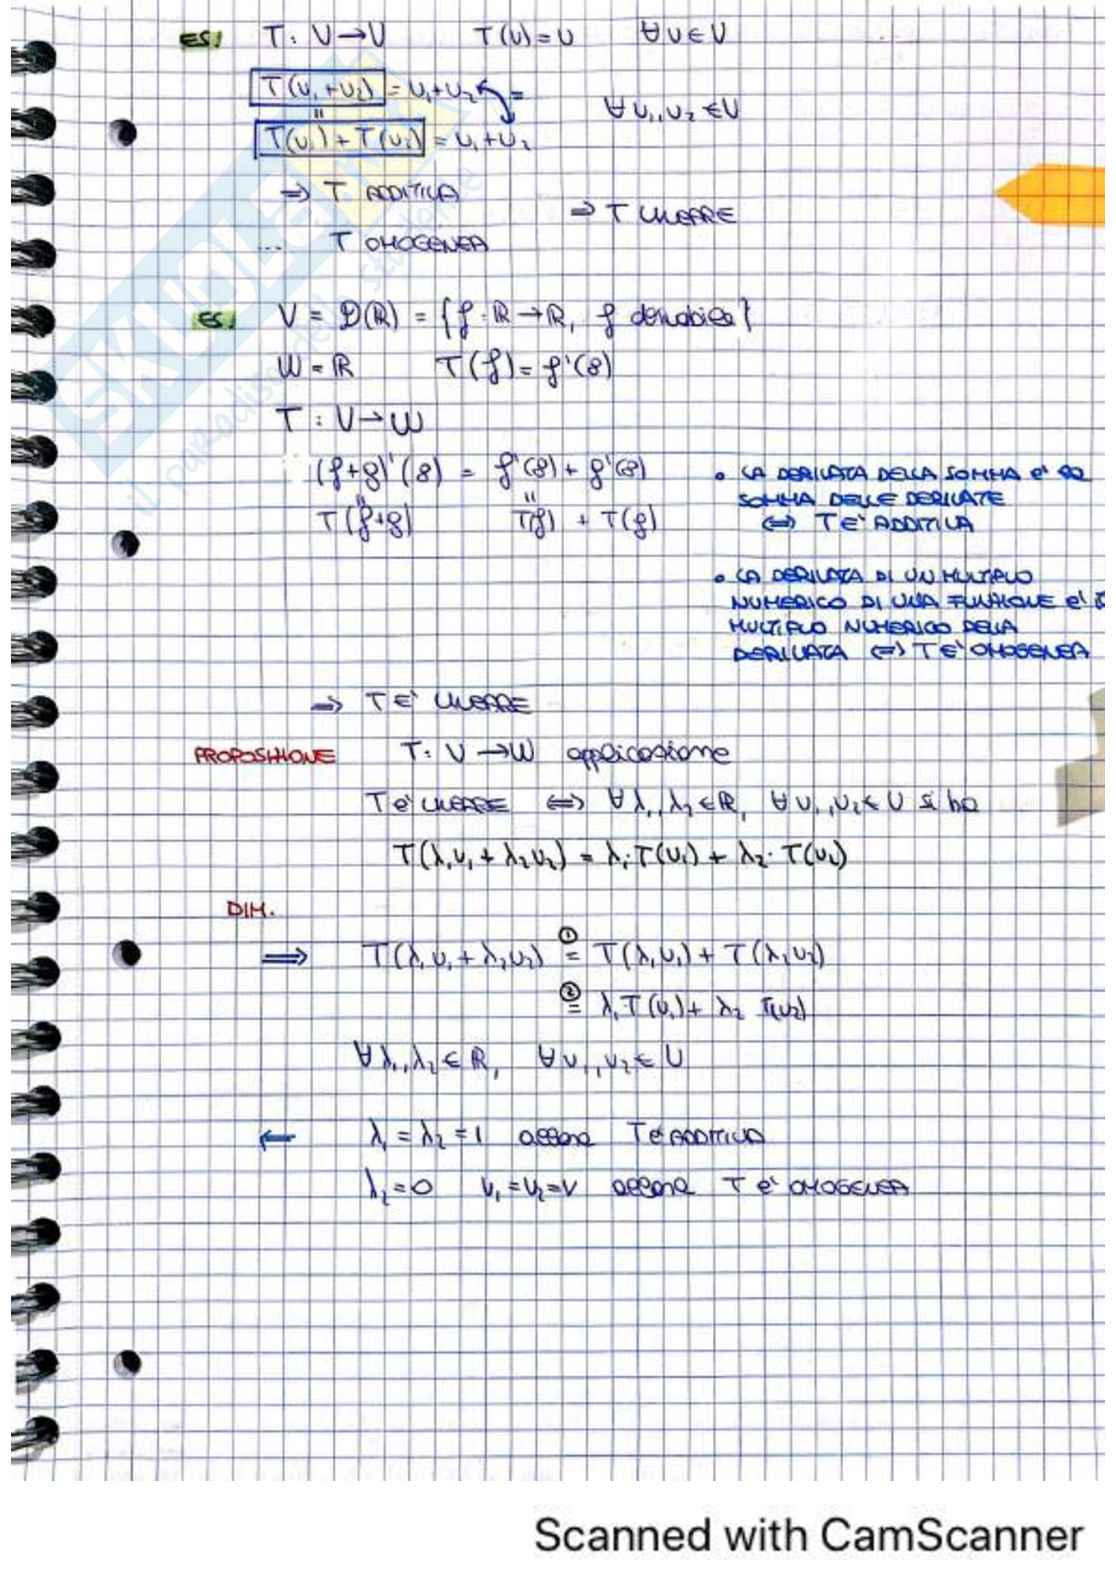 ES! T: V→V T(v)=v ∀v∈V
T(v₁+v₂) = v₁+v₂ =
=
T(v₁)+T(v₂) = v₁+v₂ ∀v₁,v₂∈V
⇒ T ADDITIVA
⇒ T LINEARE
... T OMOGENEA
ES. V = D(R) = {f: R→R, f derivabile}
W = R T(f) = f'(8)
T: V→W
(f+g)'(8) = f'(8) + g'(8)
= =
T(f+g) T(f) + T(g)
• LA DERIVATA DELLA SOMMA E' LA
SOMMA DELLE DERIVATE
⇔ T E' ADDITIVA
• LA DERIVATA DI UN MULTIPLO
NUMERICO DI UNA FUNZIONE E' IL
MULTIPLO NUMERICO DELLA
DERIVATA ⇔ T E' OMOGENEA
⇒ T E' LINEARE
PROPOSIZIONE T: V→W applicazione
T e' LINEARE ⇔ ∀λ₁,λ₂∈R, ∀v₁,v₂∈V si ha
T(λ₁v₁ + λ₂v₂) = λ₁·T(v₁) + λ₂·T(v₂)
DIM.
⇒ T(λ₁v₁ + λ₂v₂) =① T(λ₁v₁) + T(λ₂v₂)
=② λ₁T(v₁) + λ₂ T(v₂)
∀λ₁,λ₂∈R, ∀v₁,v₂∈V
← λ₁ = λ₂ = 1 allora T è ADDITIVA
λ₂=0 v₁=v₂=v allora T e' OMOGENEA
SKUOLA
il paradiso dello studente
Scanned with CamScanner